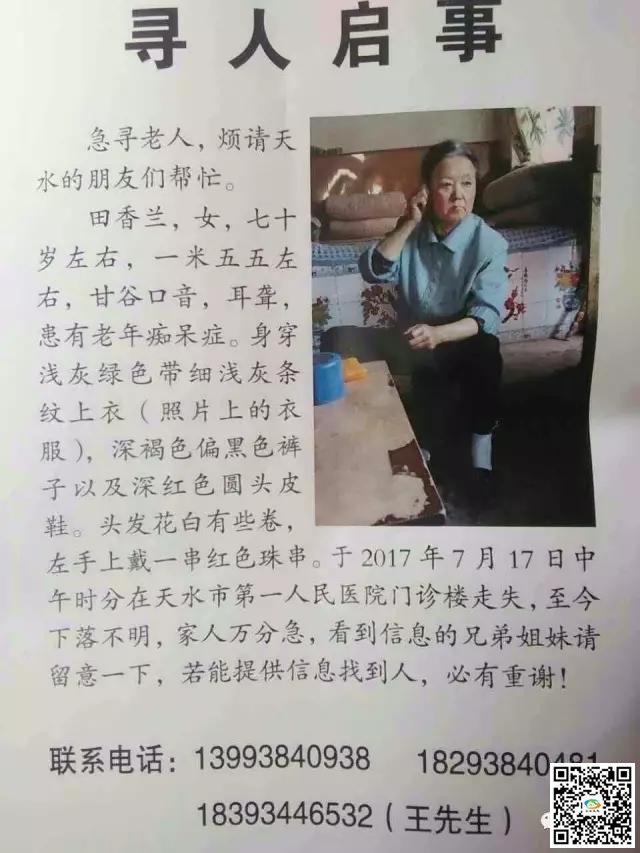 寻人启事
急寻老人，烦请天
水的朋友们帮忙。
田香兰，女，七十
岁左右，一米五五左
右，甘谷口音，耳聋，
患有老年痴呆症。身穿
浅灰绿色带细浅灰条
纹上衣（照片上的衣
服），深褐色偏黑色裤
子以及深红色圆头皮
鞋。头发花白有些卷，
左手上戴一串红色珠串。于2017年7月17日中
午时分在天水市第一人民医院门诊楼走失，至今
下落不明，家人万分急，看到信息的兄弟姐妹请
留意一下，若能提供信息找到人，必有重谢！
联系电话：13993840938 18293840481
18393446532（王先生）